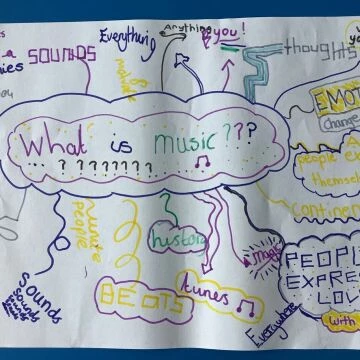 SOUNDS
Everything
Anything
you!
thoughts
EMOT
change
What is music???
... ? ???????? .....
people e
themsel
continen
history
nature
people
BEATS
tunes
magic
Everywhere
PEOPL
EXPRE
LOV
With
Sounds
Sounds
Sounds
Sounds